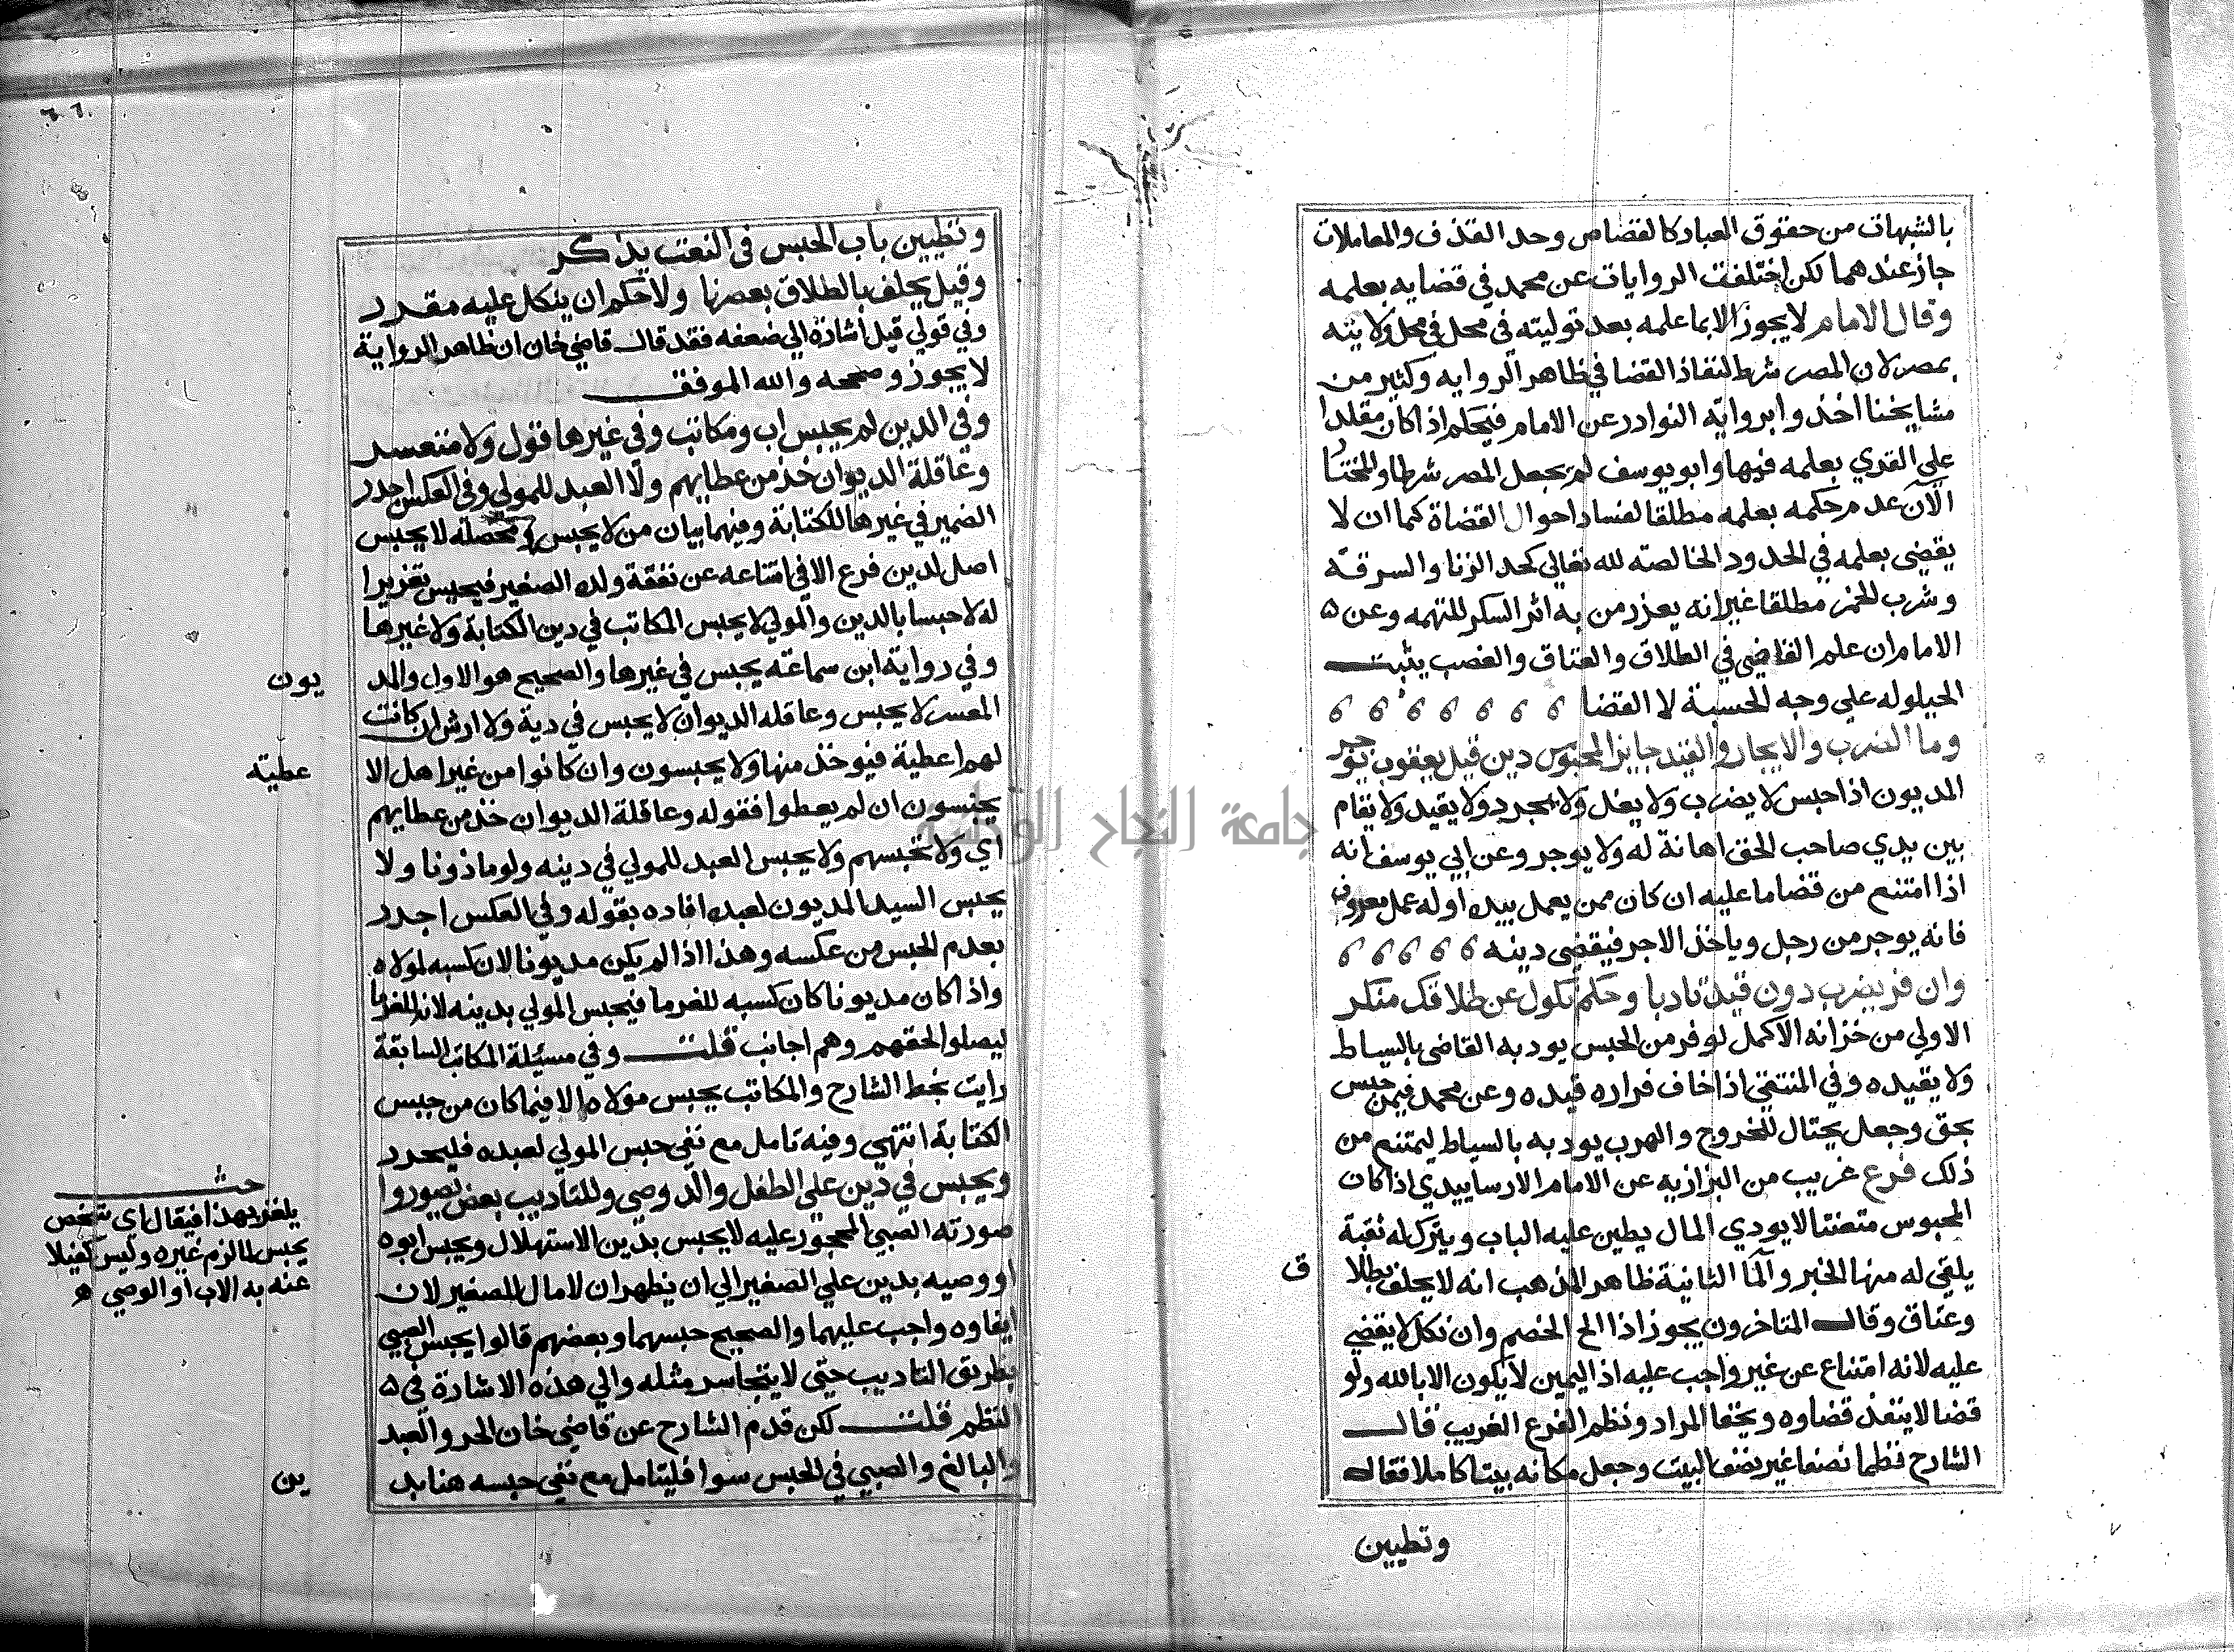 بالشبهات من حقوق العباد كالقصاص وحد القذف والمعاملات
جاز عندهما لكن اختلفت الروايات عن محمد في قضايه بعلمه
وقال الامام لا يجوز الا بما علمه بعد توليته في محل في محل ولايته
بمصر لان المصر شرط لنفاذ القضا في ظاهر الروايه وكثير من
مشايخنا اخذوا بروايه النوادر عن الامام فيحكم اذا كان مقلدا
علي القري بعلمه فيها وابو يوسف لم يجعل المصر شرطا والمختار
الآن عدم حكمه بعلمه مطلقا لفساد احوال القضاة كما ان لا
يقضي بعلمه في الحدود الخالصه لله تعالي كحد الزنا والسرقة
وشرب الخمر مطلقا غير انه يعزر من به اثر السكر للتهمه وعن
الامام ان علم القاضي في الطلاق والعتاق والغصب يثبت
الحيلوله علي وجه الحسبة لا القضا
وما الضرب والايجار والقيد جايز المحبوس دين قيل يعقوب يوجر
المديون اذا حبس لا يضرب ولا يغل ولا يجرد ولا يقيد ولا يقام
بين يدي صاحب الحق اهانة له ولا يوجر وعن ابي يوسف انه
اذا امتنع من قضا ما عليه ان كان ممن يعمل بيده او له عمل معروف
فانه يوجر من رجل وياخذ الاجر فيقضي دينه
وان فر يضرب دون قيد تاديا وحكم نكول عن طلاقك منكر
الاولي من خزانه الاكمل لو فر من الحبس يودبه القاضي بالسياط
ولا يقيده وفي المنتقي اذا خاف فراره قيده وعن محمد فيمن حبس
بحق وجعل يحتال للخروج والهرب يودبه بالسياط ليمتنع من
ذلك فرع غريب من البزازيه عن الامام الارسابيدي اذا كان
المحبوس متعنتا لا يودي المال يطين عليه الباب ويترك له ثقبة
يلقي له منها الخبز وآلما الثانية ظاهر المذهب انه لا يحلف بطلا
ق
وعتاق وقال المتاخرون يجوز اذا الح الخصم وان نكل لا يقضي
عليه لانه امتناع عن غير واجب عليه اذ اليمين لا يكون الا بالله ولو
قضا لا ينفذ قضاوه ويخفا المراد ونظم الفرع الغريب قال
الشارح نظما نصفا غير نصف البيت وجعل مكانه بيتا كاملا فقال
وتطيين
وتطيين باب الحبس في النعت يذكر
وقيل يحلف بالطلاق بعصرنا ولا حكم ان ينكل عليه مقدر
وفي قولي قيل اشارة الي ضعفه فقد قال قاضي خان ان ظاهر الرواية
لا يجوز وصححه والله الموفق
وفي الدين لم يحبس اب ومكاتب وفي غيرها قول ولا متعسر
وعاقلة الديوان خذ من عطايهم ولا العبد للمولي وفي العكس اجدر
الضمير في غيرها للكتابة وفيهما بيان من لا يحبس ومحصله لا يحبس
اصل لدين فرع الا في امتناعه عن نفقة ولده الصغير فيحبس تعزيرا
له لا حبسا بالدين والمولي لا يحبس المكاتب في دين الكتابة ولا غيرها
وفي رواية ابن سماعته يحبس في غيرها والصحيح هو الاول والمد
يون
المعسر لا يحبس وعاقله الديوان لا يحبس في دية ولا ارش ان كانت
لهم اعطية فيوخذ منها ولا يحبسون وان كانوا من غير اهل الا
عطيه
يحبسون ان لم يعطوا فقوله وعاقلة الديوان خذ من عطايهم
اي ولا تحبسهم ولا يحبس العبد للمولي في دينه ولو ماذونا ولا
يحبس السيد المديون لعبده افاده بقوله وفي العكس اجدر
بعدم الحبس من عكسه وهذا اذا لم يكن مديونا لان كسبه لمولاه
واذا كان مديونا كان كسبه للغرما فيحبس المولي بدينه لانه للغرما
ليصلوا لحقهم وهم اجانب قلت وفي مسئلة المكاتب السابقة
رايت بخط الشارح والمكاتب يحبس مولاه الا فيما كان من جنس
الكتابة انتهي وفيه تامل مع نفي حبس المولي لعبده فليحرر
ويحبس في دين علي الطفل والد وصي وللتاديب بعض يصوروا
صورته الصبي المحجور عليه لا يحبس بدين الاستهلال ويحبس ابوه
او وصيه بدين علي الصغير الي ان يظهر ان لا مال للصغير لان
ايفاوه واجب عليهما والصحيح حبسهما وبعضهم قالوا يحبس الصبي
بطريق التاديب حتي لا يتجاسر مثله والي هذه الاشارة في
النظم قلت لكن قدم الشارح عن قاضي خان الحر والعبد
والبالغ والصبي في الحبس سوا فليتامل مع نفي حبسه هنا بد
ين
يلغز بهذا فيقال اي شخص
يحبس لما لزم غيره وليس كفيلا
عنه به الاب او الوصي
جامعة النجاح الوطنية